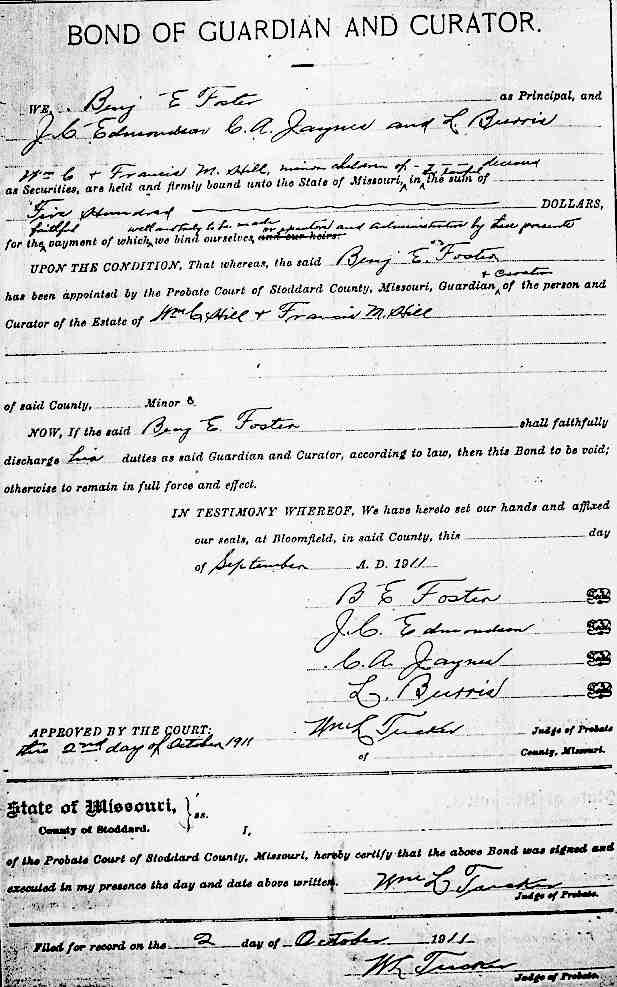 BOND OF GUARDIAN AND CURATOR.
WE, Benj E Foster as Principal, and
J. C. Edmondson C. A. Jaynes and L. Burris
Wm C + Francis M. Hill, minor children of deceased
as Securities, are held and firmly bound unto the State of Missouri, in the sum of
Five Hundred DOLLARS,
faithful well and truly to be made and administrator by these presents
for the payment of which, we bind ourselves, and our heirs.
UPON THE CONDITION, That whereas, the said Benj E. Foster
+ Curator
has been appointed by the Probate Court of Stoddard County, Missouri, Guardian of the person and
Curator of the Estate of Wm C Hill + Francis M. Hill
of said County, Minor s
NOW, If the said Benj E. Foster shall faithfully
discharge his duties as said Guardian and Curator, according to law, then this Bond to be void;
otherwise to remain in full force and effect.
IN TESTIMONY WHEREOF, We have hereto set our hands and affixed
our seals, at Bloomfield, in said County, this day
of September A. D. 1911
B E Foster Seal
J. C. Edmondson Seal
C. A. Jaynes Seal
L. Burris Seal
APPROVED BY THE COURT: Wm L Tucker Judge of Probate
this 2nd day of October 1911 of County, Missouri.
State of Missouri, } ss.
County of Stoddard. I,
of the Probate Court of Stoddard County, Missouri, hereby certify that the above Bond was signed and
executed in my presence the day and date above written. Wm L Tucker
Judge of Probate.
Filed for record on the 2 day of October 1911
W L Tucker
Judge of Probate.